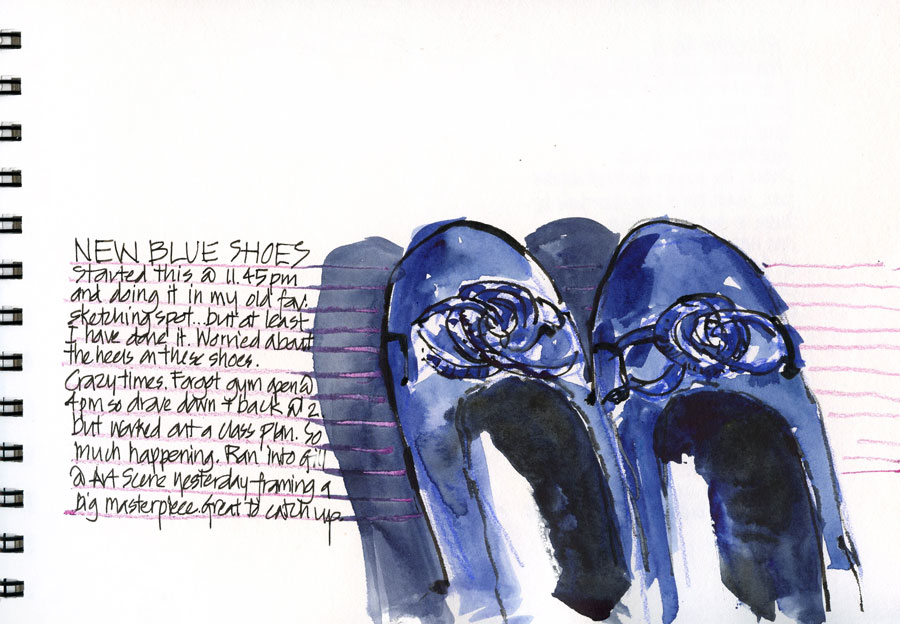 NEW BLUE SHOES
Started this @ 11.45pm
and doing it in my old fav.
sketching spot.. but at least
I have done it. Worried about
the heels on these shoes.
Crazy times. Forgot gym open @
4pm so drove down + back at 2
but worked out a class plan. So
much happening. Ran into
@ Art Scene yesterday-framing a
big masterpiece. Great to catch up